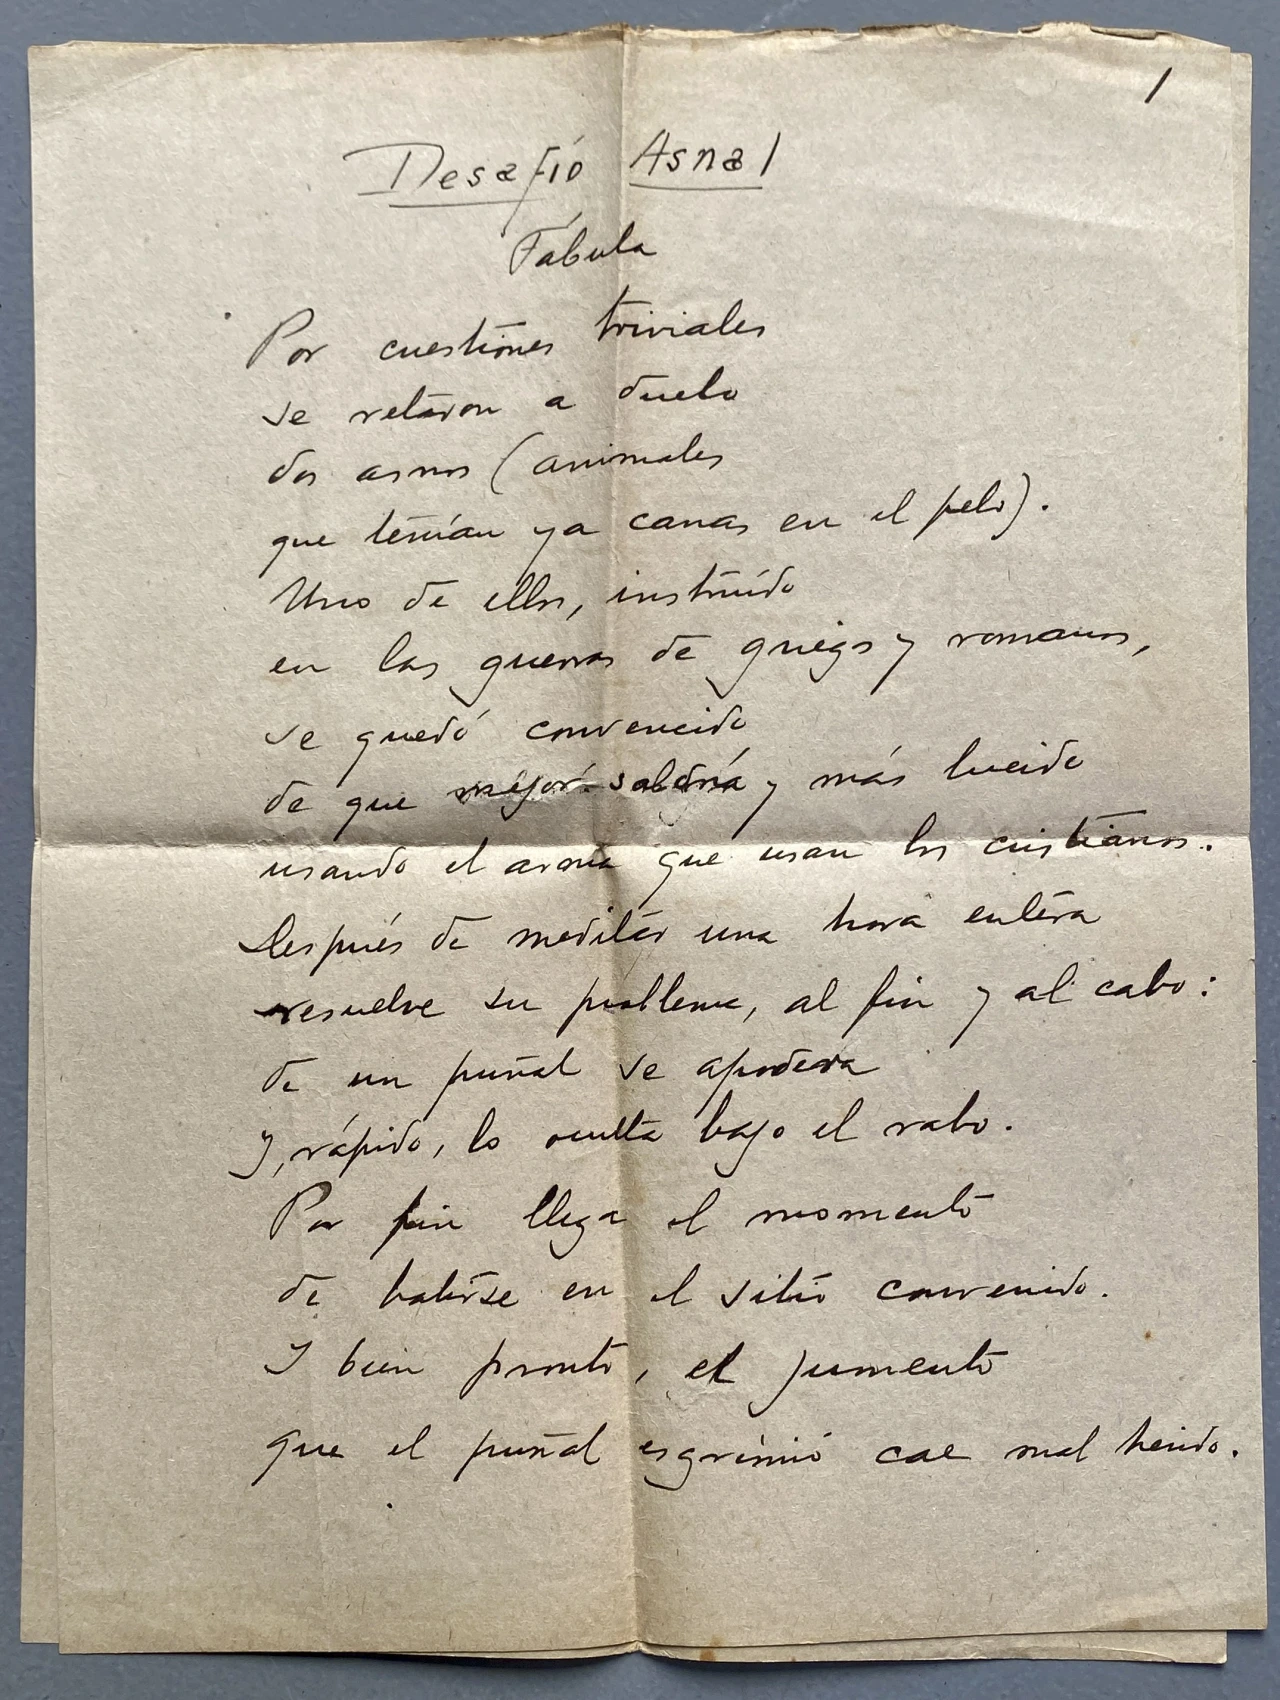 1
Desafío Asnal
Fábula
Por cuestiones triviales
se retaron a duelo
dos asnos (animales
que tenían ya canas en el pelo).
Uno de ellos, instruído
en las guerras de griegos y romanos,
se quedó convencido
de que mejor saldría y más lucido
usando el arma que usan los cristianos.
Después de meditar una hora entera
resuelve su problema, al fin y al cabo:
de un puñal se apodera
y, rápido, lo oculta bajo el rabo.
Por fin llega el momento
de batirse en el sitio convenido.
Y bien pronto, el jumento
que el puñal esgrimió cae mal herido.